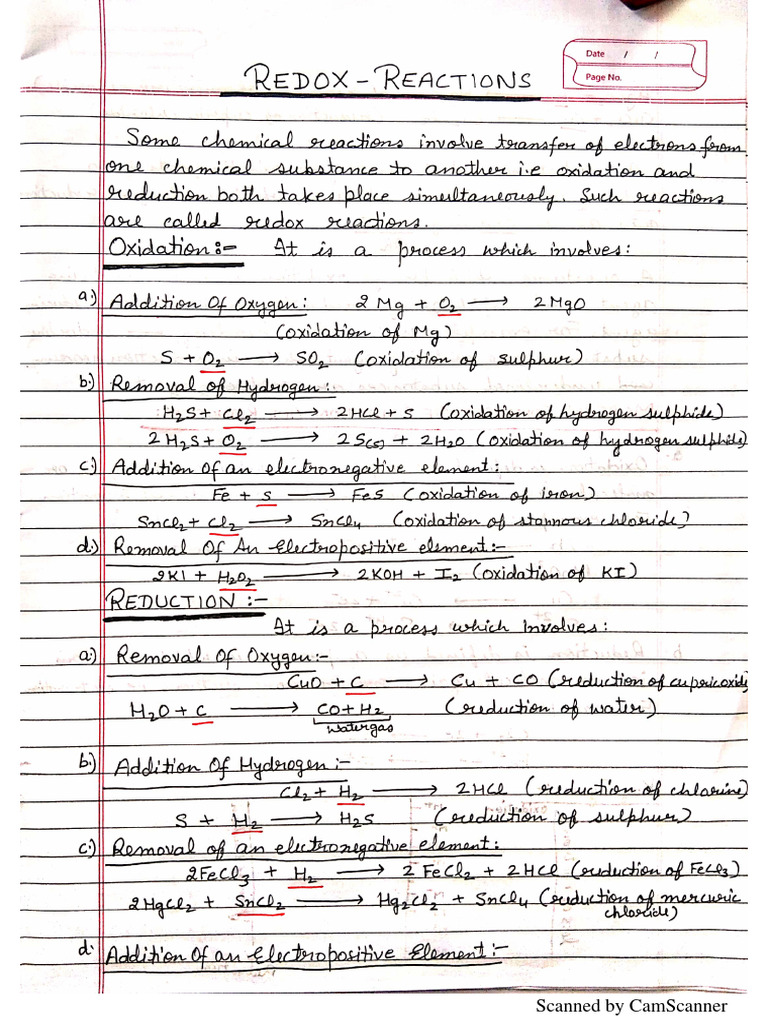 REDOX-REACTIONS
Date / /
Page No.
Some chemical reactions involve transfer of electrons from
one chemical substance to another i.e oxidation and
reduction both takes place simultaneously. Such reactions
are called redox reactions.
Oxidation:- It is a process which involves:
a) Addition Of Oxygen: 2 Mg + O₂ ⟶ 2MgO
(oxidation of Mg)
S + O₂ ⟶ SO₂ (oxidation of sulphur)
b) Removal of Hydrogen:-
H₂S + Cl₂ ⟶ 2HCl + S (oxidation of hydrogen sulphide)
2H₂S + O₂ ⟶ 2S(s) + 2H₂O (oxidation of hydrogen sulphide)
c) Addition of an electronegative element:
Fe + S ⟶ FeS (oxidation of iron)
SnCl₂ + Cl₂ ⟶ SnCl₄ (oxidation of stannous chloride)
d) Removal Of An Electropositive element:-
2KI + H₂O₂ ⟶ 2KOH + I₂ (oxidation of KI)
REDUCTION:-
It is a process which involves:
a) Removal Of Oxygen:-
CuO + C ⟶ Cu + CO (reduction of cupric oxide)
H₂O + C ⟶ CO + H₂ (reduction of water)
watergas
b) Addition Of Hydrogen:-
Cl₂ + H₂ ⟶ 2HCl (reduction of chlorine)
S + H₂ ⟶ H₂S (reduction of sulphur)
c) Removal of an electronegative element:
2FeCl₃ + H₂ ⟶ 2FeCl₂ + 2HCl (reduction of FeCl₃)
2HgCl₂ + SnCl₂ ⟶ Hg₂Cl₂ + SnCl₄ (reduction of mercuric
chloride)
d. Addition Of an Electropositive Element:-
Scanned by CamScanner